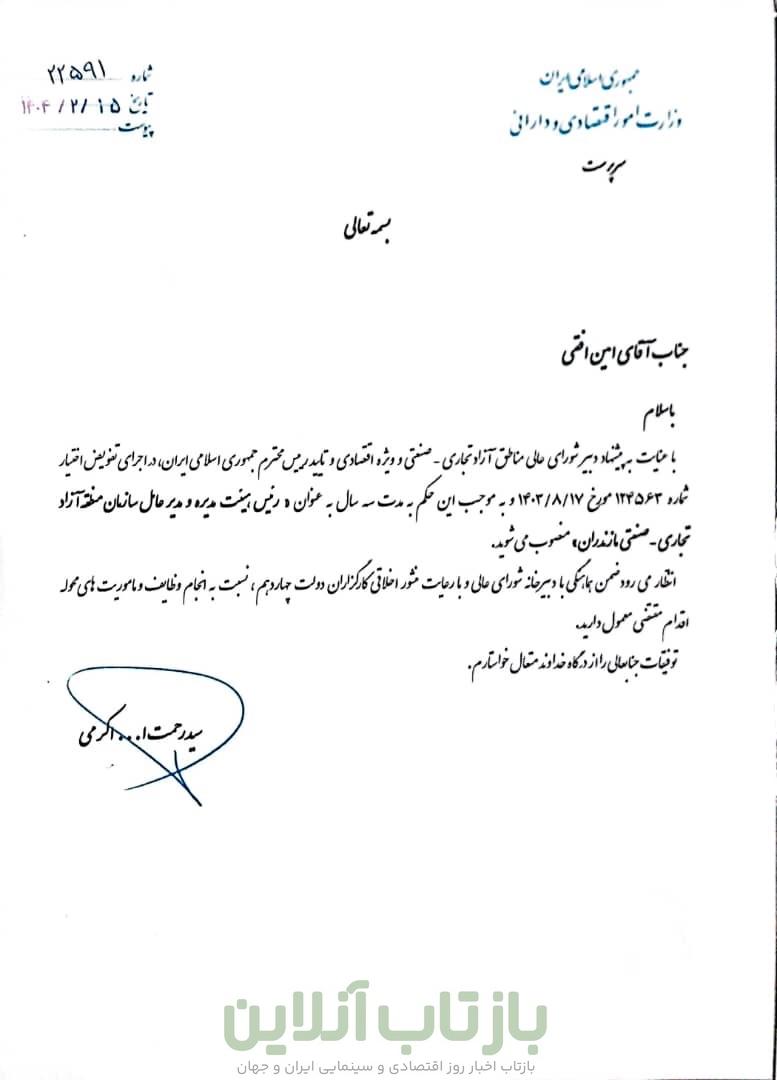 جمهوری اسلامی ایران
وزارت امور اقتصادی و دارائی
سرپرست
شماره ۲۲۵۹۱
تاریخ ۱۴۰۴/۲/۱۵
پیوست
بسمه تعالی
جناب آقای امین افقی
باسلام
با عنایت به پیشنهاد دبیر شورای عالی مناطق آزاد تجاری - صنعتی و ویژه اقتصادی و تایید رییس محترم جمهوری اسلامی ایران، در اجرای تفویض اختیار
شماره ۱۲۴۵۶۳ مورخ ۱۴۰۳/۸/۱۷ و به موجب این حکم به مدت سه سال به عنوان « رئیس هیئت مدیره و مدیر عامل سازمان منطقه آزاد
تجاری - صنعتی مازندران» منصوب می شوید.
انتظار می رود ضمن هماهنگی با دبیرخانه شورای عالی و با رعایت منشور اخلاقی کارگزاران دولت چهاردهم، نسبت به انجام وظایف و ماموریت های محوله
اقدام مقتضی معمول دارید.
توفیقات جنابعالی را از درگاه خداوند متعال خواستارم.
سید رحمت ا... اکرمی
بازتاب آنلاین
بازتاب اخبار روز اقتصادی و سینمایی ایران و جهان